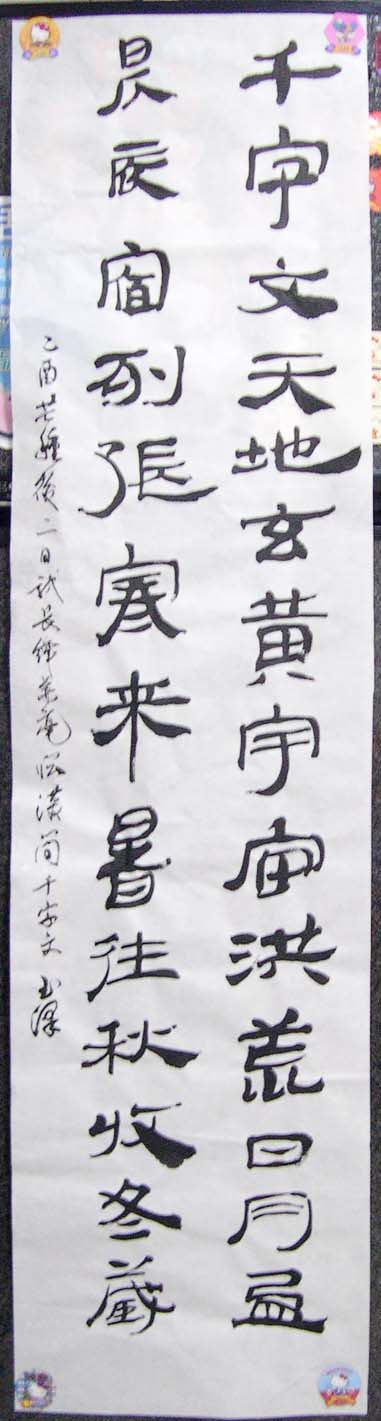 千字文天地玄黄宇宙洪荒日月盈
昃辰宿列張寒来暑往秋收冬藏
乙酉芒種後二日試長鋒羊毫漢簡千字文